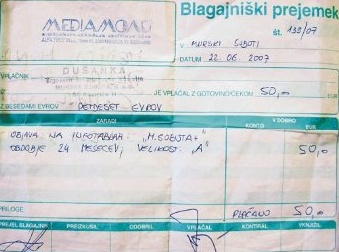 Blagajniški prejemek
MEDIAMOAD
št. 133/07
V MURSKI SOBOTI
DATUM 22. 06. 2007
DUŠANKA
VPLAČNIK
JE VPLAČAL Z GOTOVINO/ČEKOM 50,00
Z BESEDAMI EVROV PETDESET EVROV
ZARADI KONTO V DOBRO
EUR
OBJAVA NA INFOTABLAH: "M. SOBOTA" 50,00
OBDOBJE 24 MESECEV, VELIKOST "A"
PRILOGE PLAČANO 50,00
PREJEL BLAGAJNIK PREIZKUSIL ODOBRIL VPLAČAL KONTIRAL VKNJIŽIL